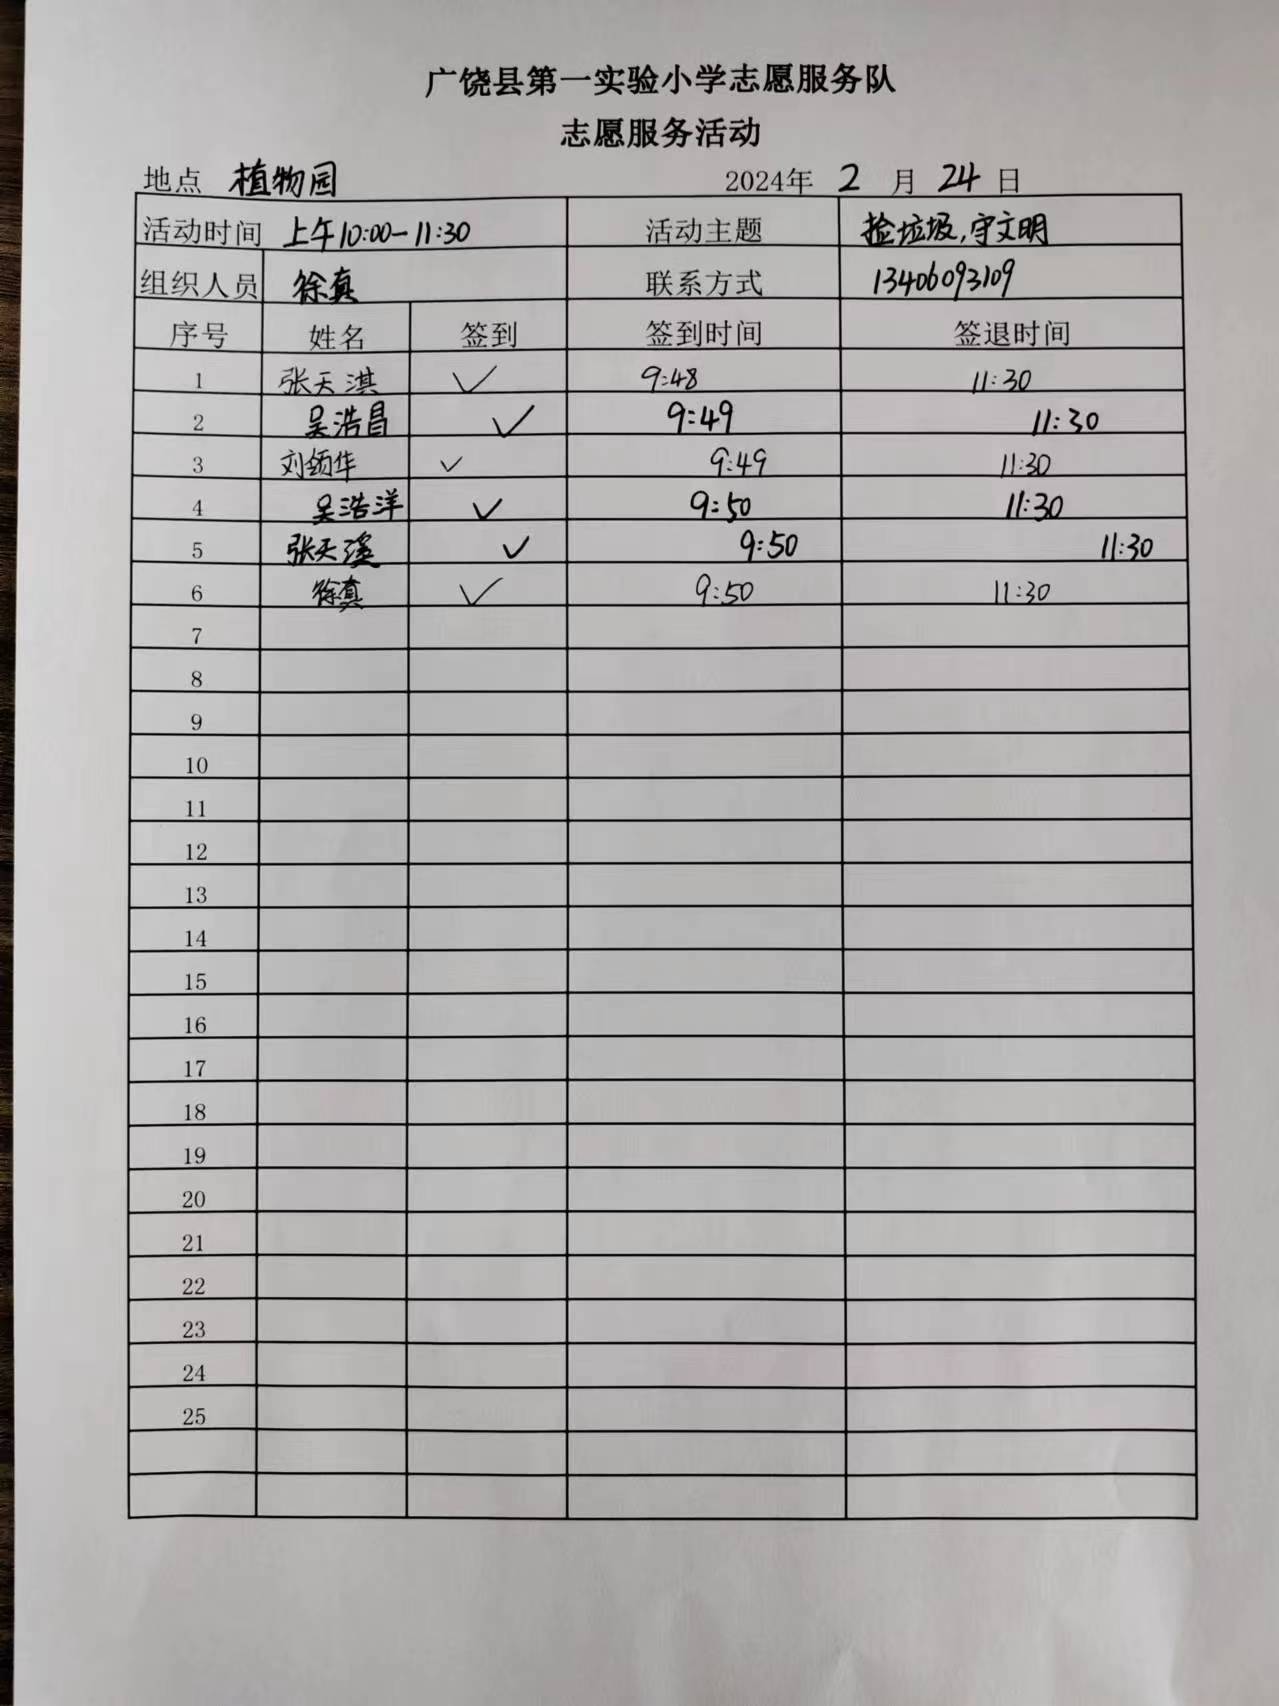 广饶县第一实验小学志愿服务队
志愿服务活动
地点 植物园 2024年 2 月 24 日
活动时间 上午10:00-11:30 活动主题 捡垃圾,守文明
组织人员 徐真 联系方式 13406093109
序号 姓名 签到 签到时间 签退时间
1 张天淇 ✓ 9:48 11:30
2 吴浩昌 ✓ 9:49 11:30
3 刘颂华 ✓ 9:49 11:30
4 吴浩洋 ✓ 9:50 11:30
5 张天溪 ✓ 9:50 11:30
6 徐真 ✓ 9:50 11:30
7
8
9
10
11
12
13
14
15
16
17
18
19
20
21
22
23
24
25